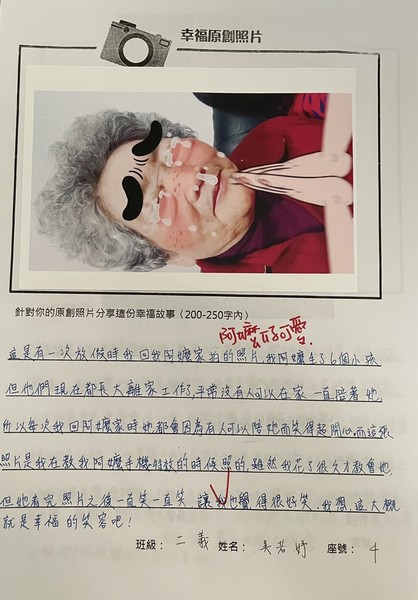 幸福原創照片
針對你的原創照片分享這份幸福故事（200-250字內）
阿嬤好可愛
這是有一次放假時我回我阿嬤家拍的照片，我阿嬤生了6個小孩
但他們現在都長大離家工作了，平常沒有人可以在家一直陪著她，
所以每次我回阿嬤家時她都會因為有人可以陪她而笑得超開心，而這張
照片是我在教我阿嬤手機特效的時候照的，雖然我花了很久才教會她，
但她看完照片之後一直笑一直笑 讓我也覺得很好笑，我想，這大概
就是幸福的笑容吧！
班級： 二義 姓名： 吳若妤 座號： 4